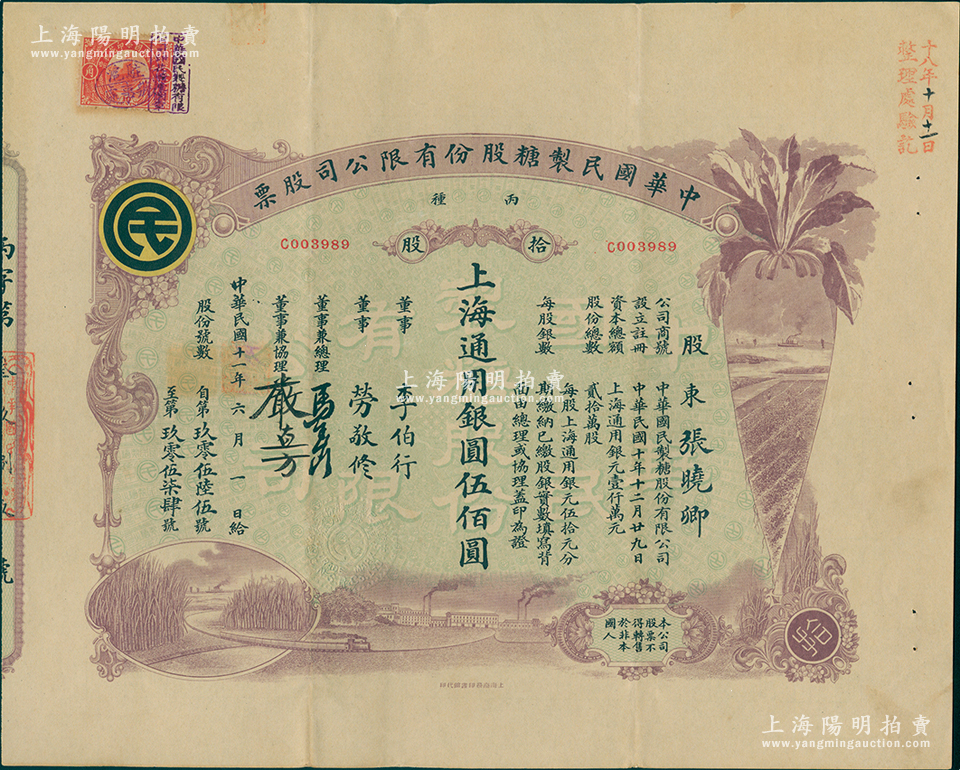 上海陽明拍賣
www.yangmingauction.com
中華國民製糖股份有限公司股票
丙種
拾股
C003989
C003989
股東 張曉卿
公司商號 中華國民製糖股份有限公司
設立註冊 中華民國十年十二月廿九日
資本總額 上海通用銀元壹仟萬元
股份總數 貳拾萬股
每股銀數 每股上海通用銀元伍拾元分
期繳納已繳股銀實數填寫背
面由總理或協理蓋印為證
上海通用銀圓伍佰圓
董事 李伯行
董事 勞敬修
董事兼總理
董事兼協理
中華民國十一年六月一日給
股份號數 自第玖零伍陸伍號
至第玖零伍柒肆號
本公司
股票不
得轉售
於非本
國人
民
拾
十八年十月十一日
整理處驗訖
丙字第
號
上海陽明拍賣
www.yangmingauction.com
上海陽明拍賣
www.yangmingauction.com